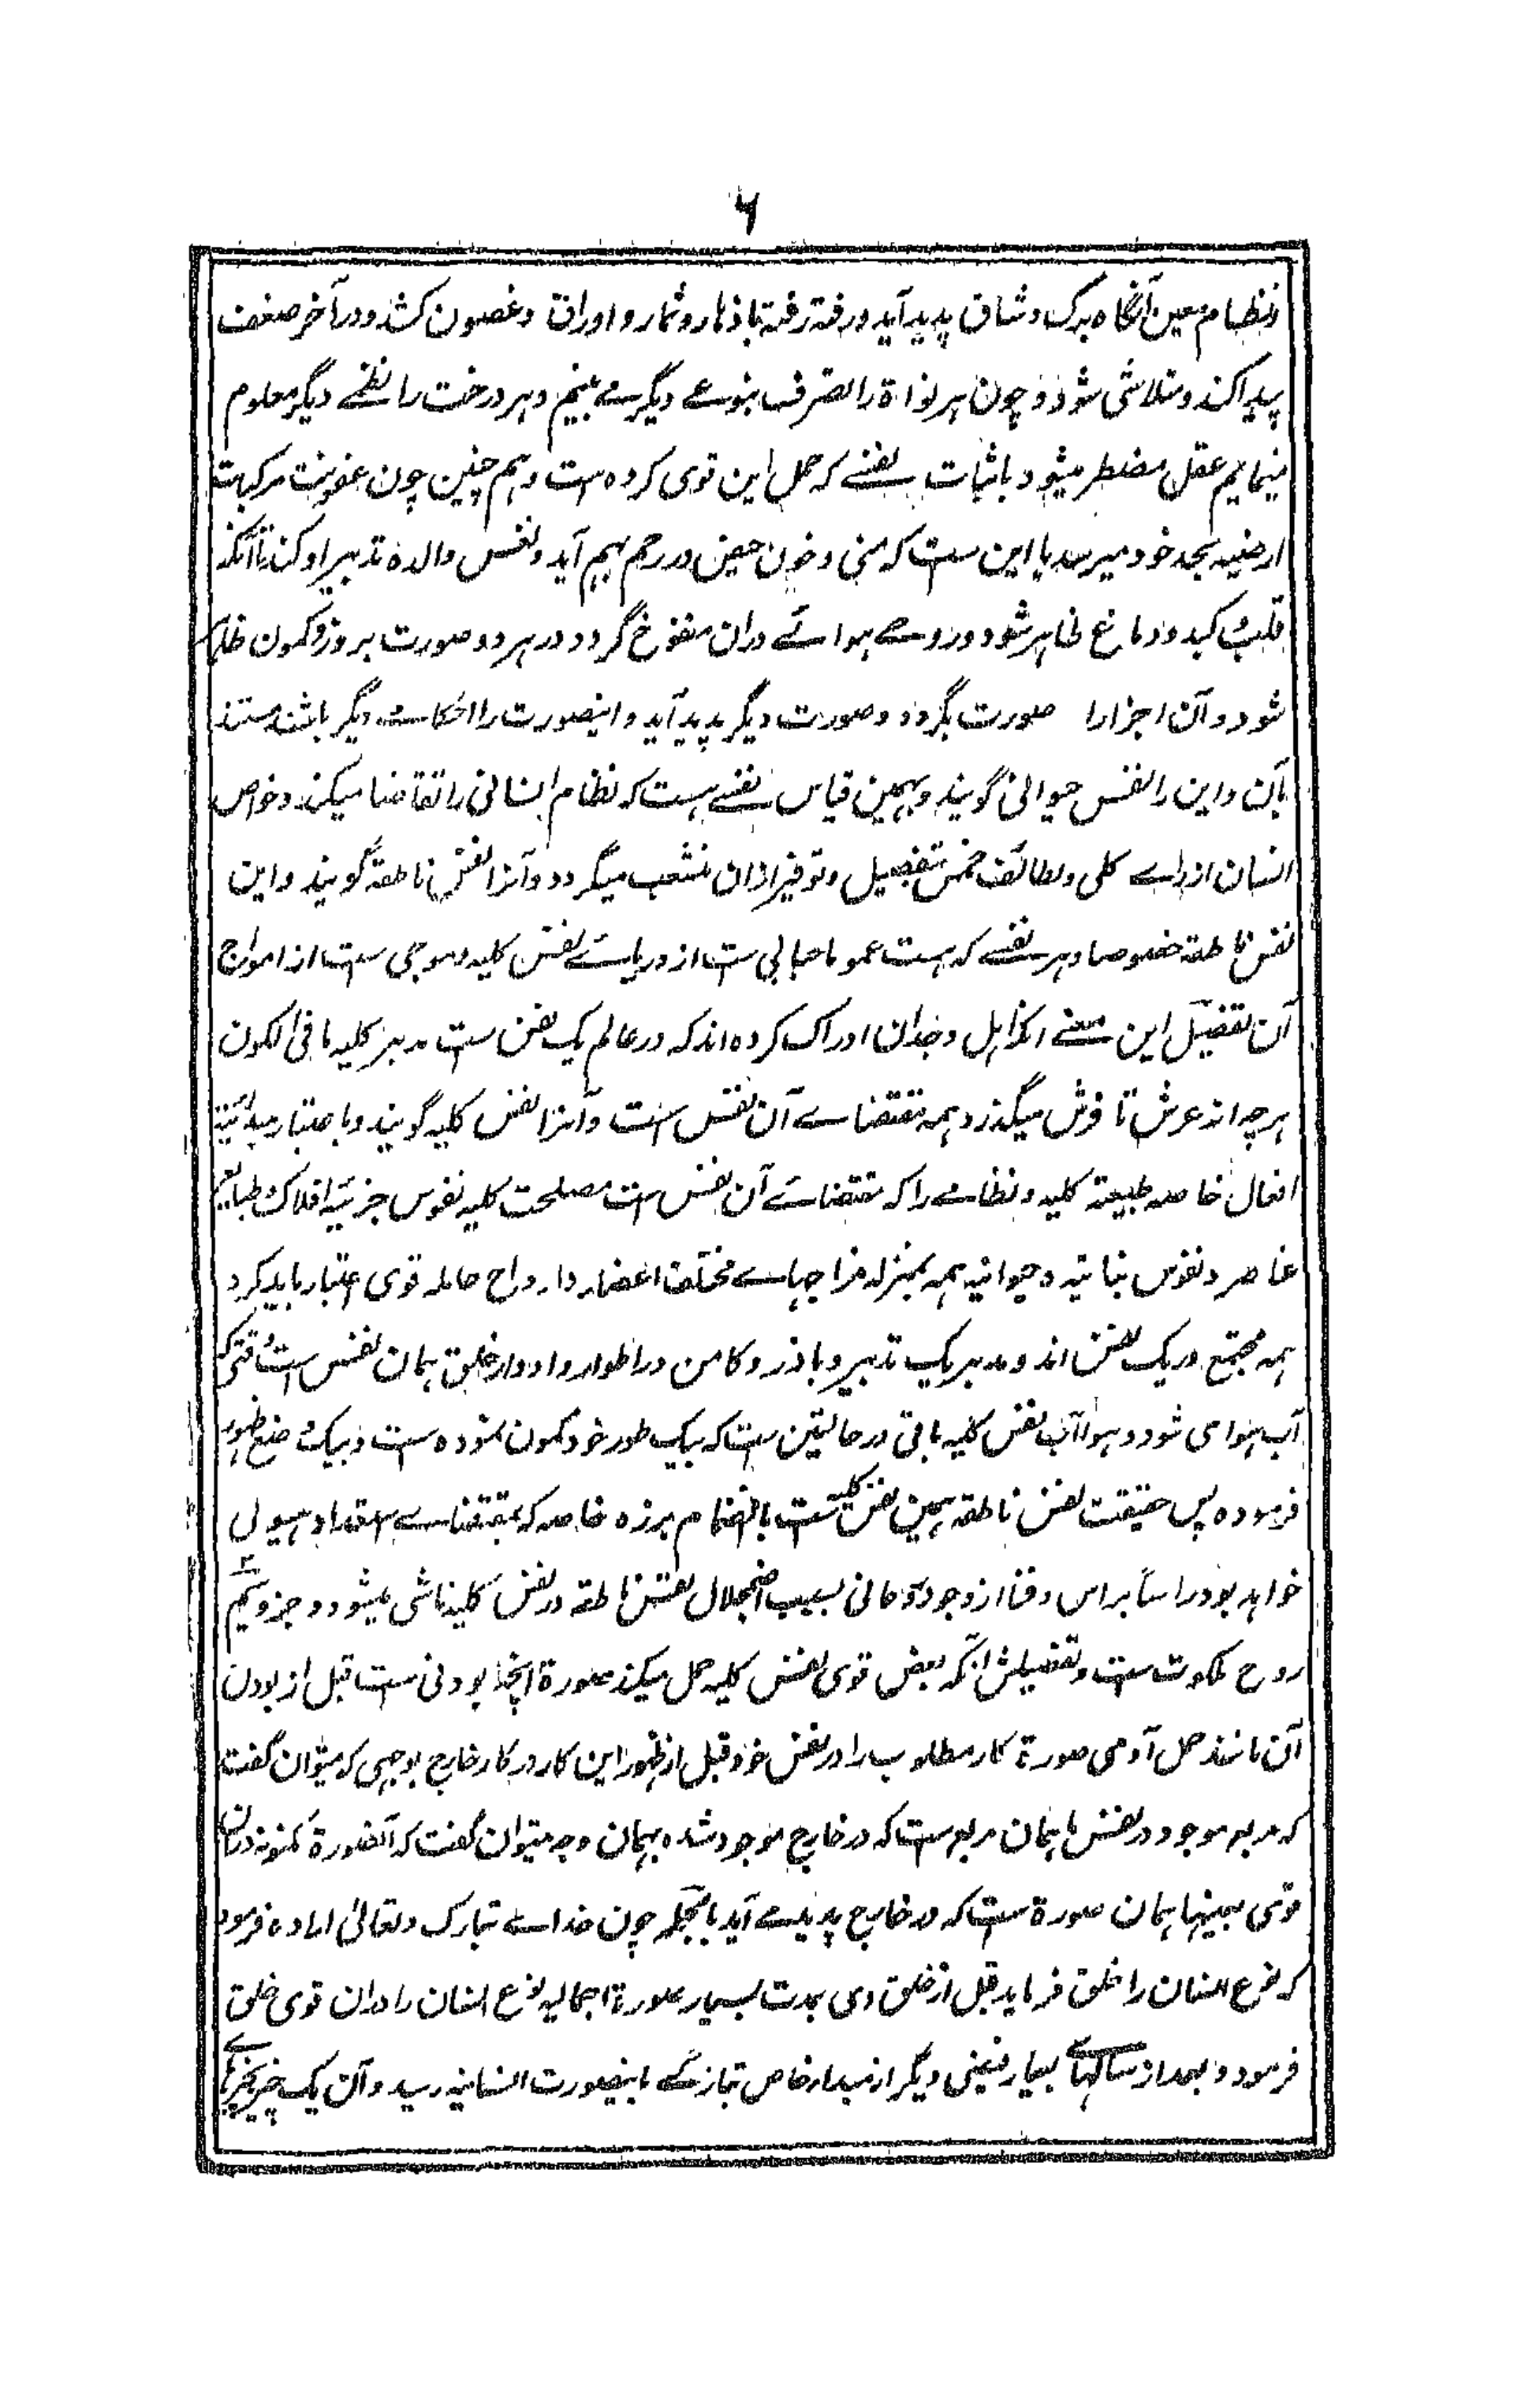 ۶
ونظام معین آنگاه برگ و شاق پدید آید و رفته رفته باذهار و ثمار و اوراق و غصون کشد و در آخر ضعف
پیدا کند و متلاشی شود و چون هر نواة را تصرف بنوعے دیگر مے بینیم و هر درخت را نظمے دیگر معلوم
مینمایم عقل مضطر میشود باثبات نفسے که حمل این قوی کرده است و همچنین چون عفونت مرکبات
ارضیه بحد خود میرسد یا این ست که منی و خون حیض در رحم بهم آید و نفس والده تدبیر او کند تا آنکه
قلب و کبد و دماغ ظاهر شود و روحے هوائے دران منفوخ گردد در هر دو صورت بروز و کمون ظاهر
شود و آن اجزا را صورت بگردد و صورت دیگر پدید آید و اینصورت را احکامے دیگر باشند مستند
بآن و این را نفس حیوانی گویند و بهمین قیاس نفسے هست که نظام انسانی را تقاضا میکند و خواص
انسان از راے کلی و لطائف خمس بتفصیل و توفیر ازان منشعب میگردد و آنرا نفس ناطقه گویند و این
نفس ناطقه خصوصا و هر نفسے که هست عموما حبابی ست از دریائے نفس کلیه و موجی ست از امواج
آن تفصیل این معنے آنکه اهل وجدان ادراک کرده اند که در عالم یک نفس ست مدبر کلیه ما فی الکون
هر چه از عرش تا فرش میگذرد همه مقتضاے آن نفس ست و آنرا نفس کلیه گویند و باعتبار مبدئیة
افعال خاصه طبیعة کلیه و نظامے را که مقتضائے آن نفس ست مصلحت کلیه نفوس جزئیه افلاک و طبایع
عناصر و نفوس نباتیه و حیوانیه همه بمنزله مزاجهاے مختلف اعضا و ارواح حامله قوی اعتبار باید کرد
همه مجتمع در یک نفس اند و مدبر بیک تدبیر و بارز و کامن در اطوار و ادوار خلق همان نفس ست وقتی که
آب هوا می شود و هوا آب نفس کلیه باقی در حالتین ست که بیک طور خود کمون نموده ست و بیک وضع ظهور
فرموده پس حقیقت نفس ناطقه همین نفس کلیه ست بانضمام برزه خاصه که بمقتضاے استعداد هیولی
خواهد بود راساً براس و فنا از وجود روحانی بسبب اضمحلال نفس ناطقه در نفس کلیه ناشی میشود و جزو سیم
روح ملکوت ست و تفصیلش آنکه بعض قوی نفس کلیه حمل میکند صورة آنچه بودنی ست قبل از بودن
آن مانند حمل آدمی صورة کار مطلوب را در نفس خود قبل از ظهور این کار در کار خارج بوجهی که میتوان گفت
که مربع موجود در نفس ما همان مربع ست که در خارج موجود شده بهمان وجه میتوان گفت که آنصورة مکنونه در آن
قوی بعینها همان صورة ست که در خارج پدید مے آید بالجمله چون خداے تبارک و تعالیٰ اراده فرمود
که نوع انسان را خلق فرماید قبل از خلق وی بمدت بسیار صورة اجمالیه نوع انسان را دران قوی خلق
فرمود و بعد از سالهائے بسیار فیضی دیگر از مبدا خاص بتازگے باینصورت انسانیه رسید و آن یک چیز بچیزهاے